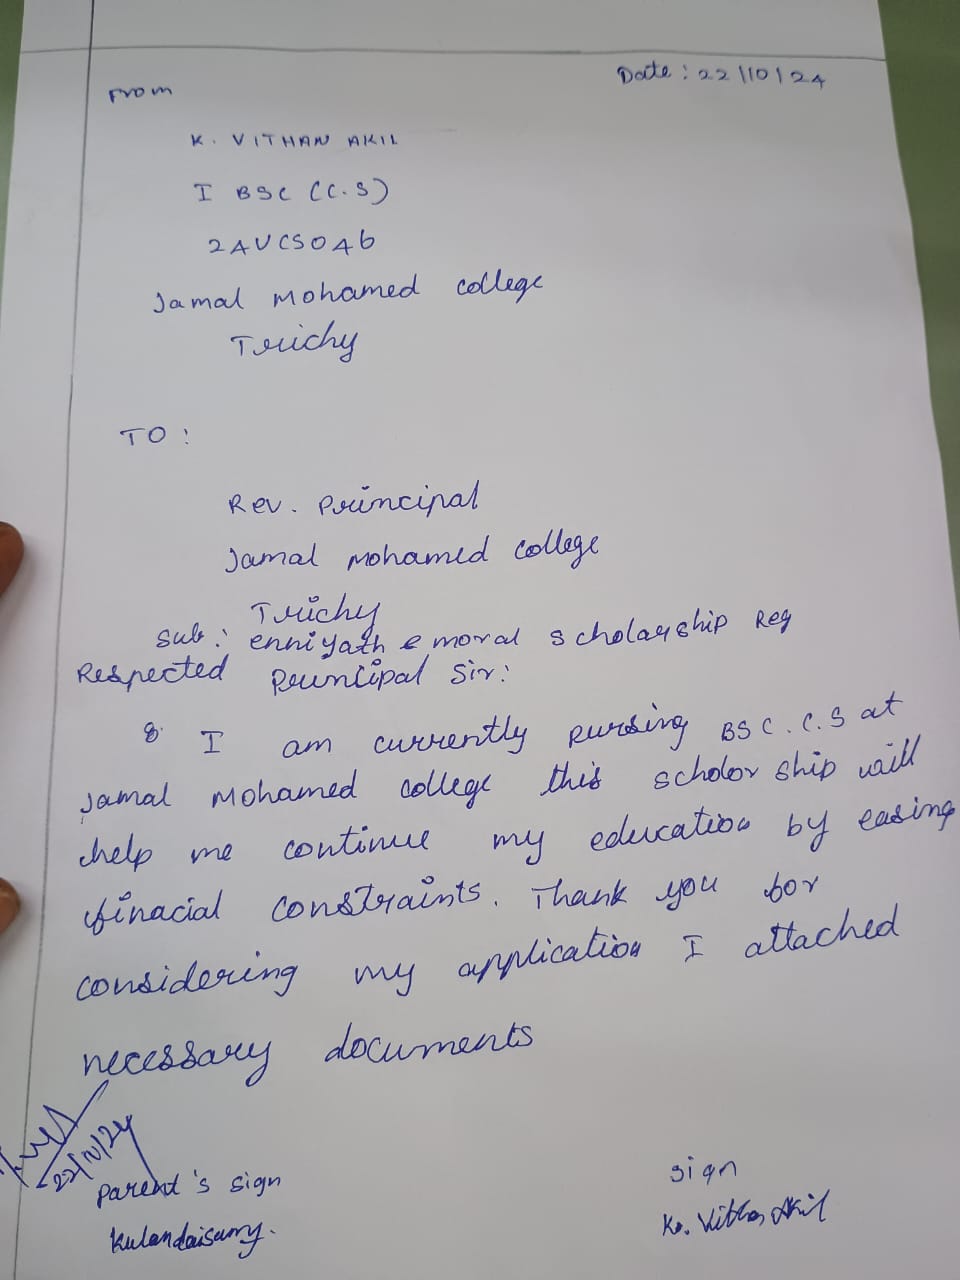 Date : 22/10/24
From
K. VITHAN AKIL
I BSC (C.S)
24UCS046
Jamal Mohamed college
Trichy
TO :
Rev. Principal
Jamal Mohamed college
Trichy
Sub : enniyath e moral scholarship Reg
Respected Principal Sir:
I am currently pursing BSC. C.S at
Jamal Mohamed college this scholor ship will
help me continue my education by easing
finacial constraints. Thank you for
considering my application I attached
necessary documents
22/10/24
Parent's sign
Kulandaisamy.
sign
K. Vithan Akil